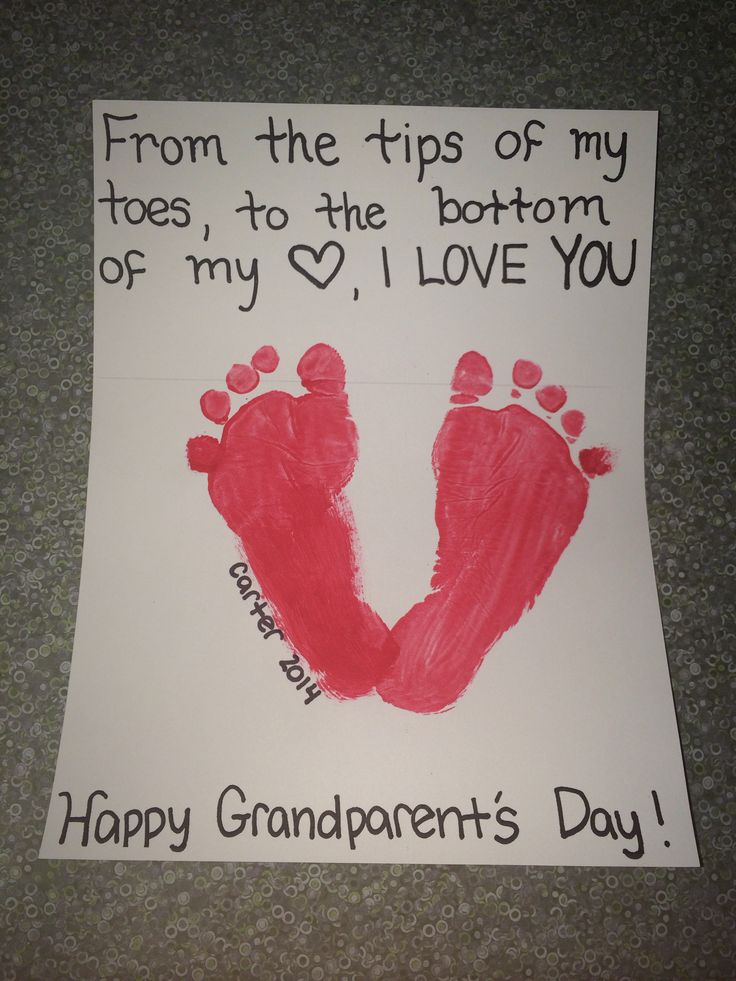 From the tips of my
toes, to the bottom
of my ♡, I LOVE YOU
carter 2014
Happy Grandparent's Day!